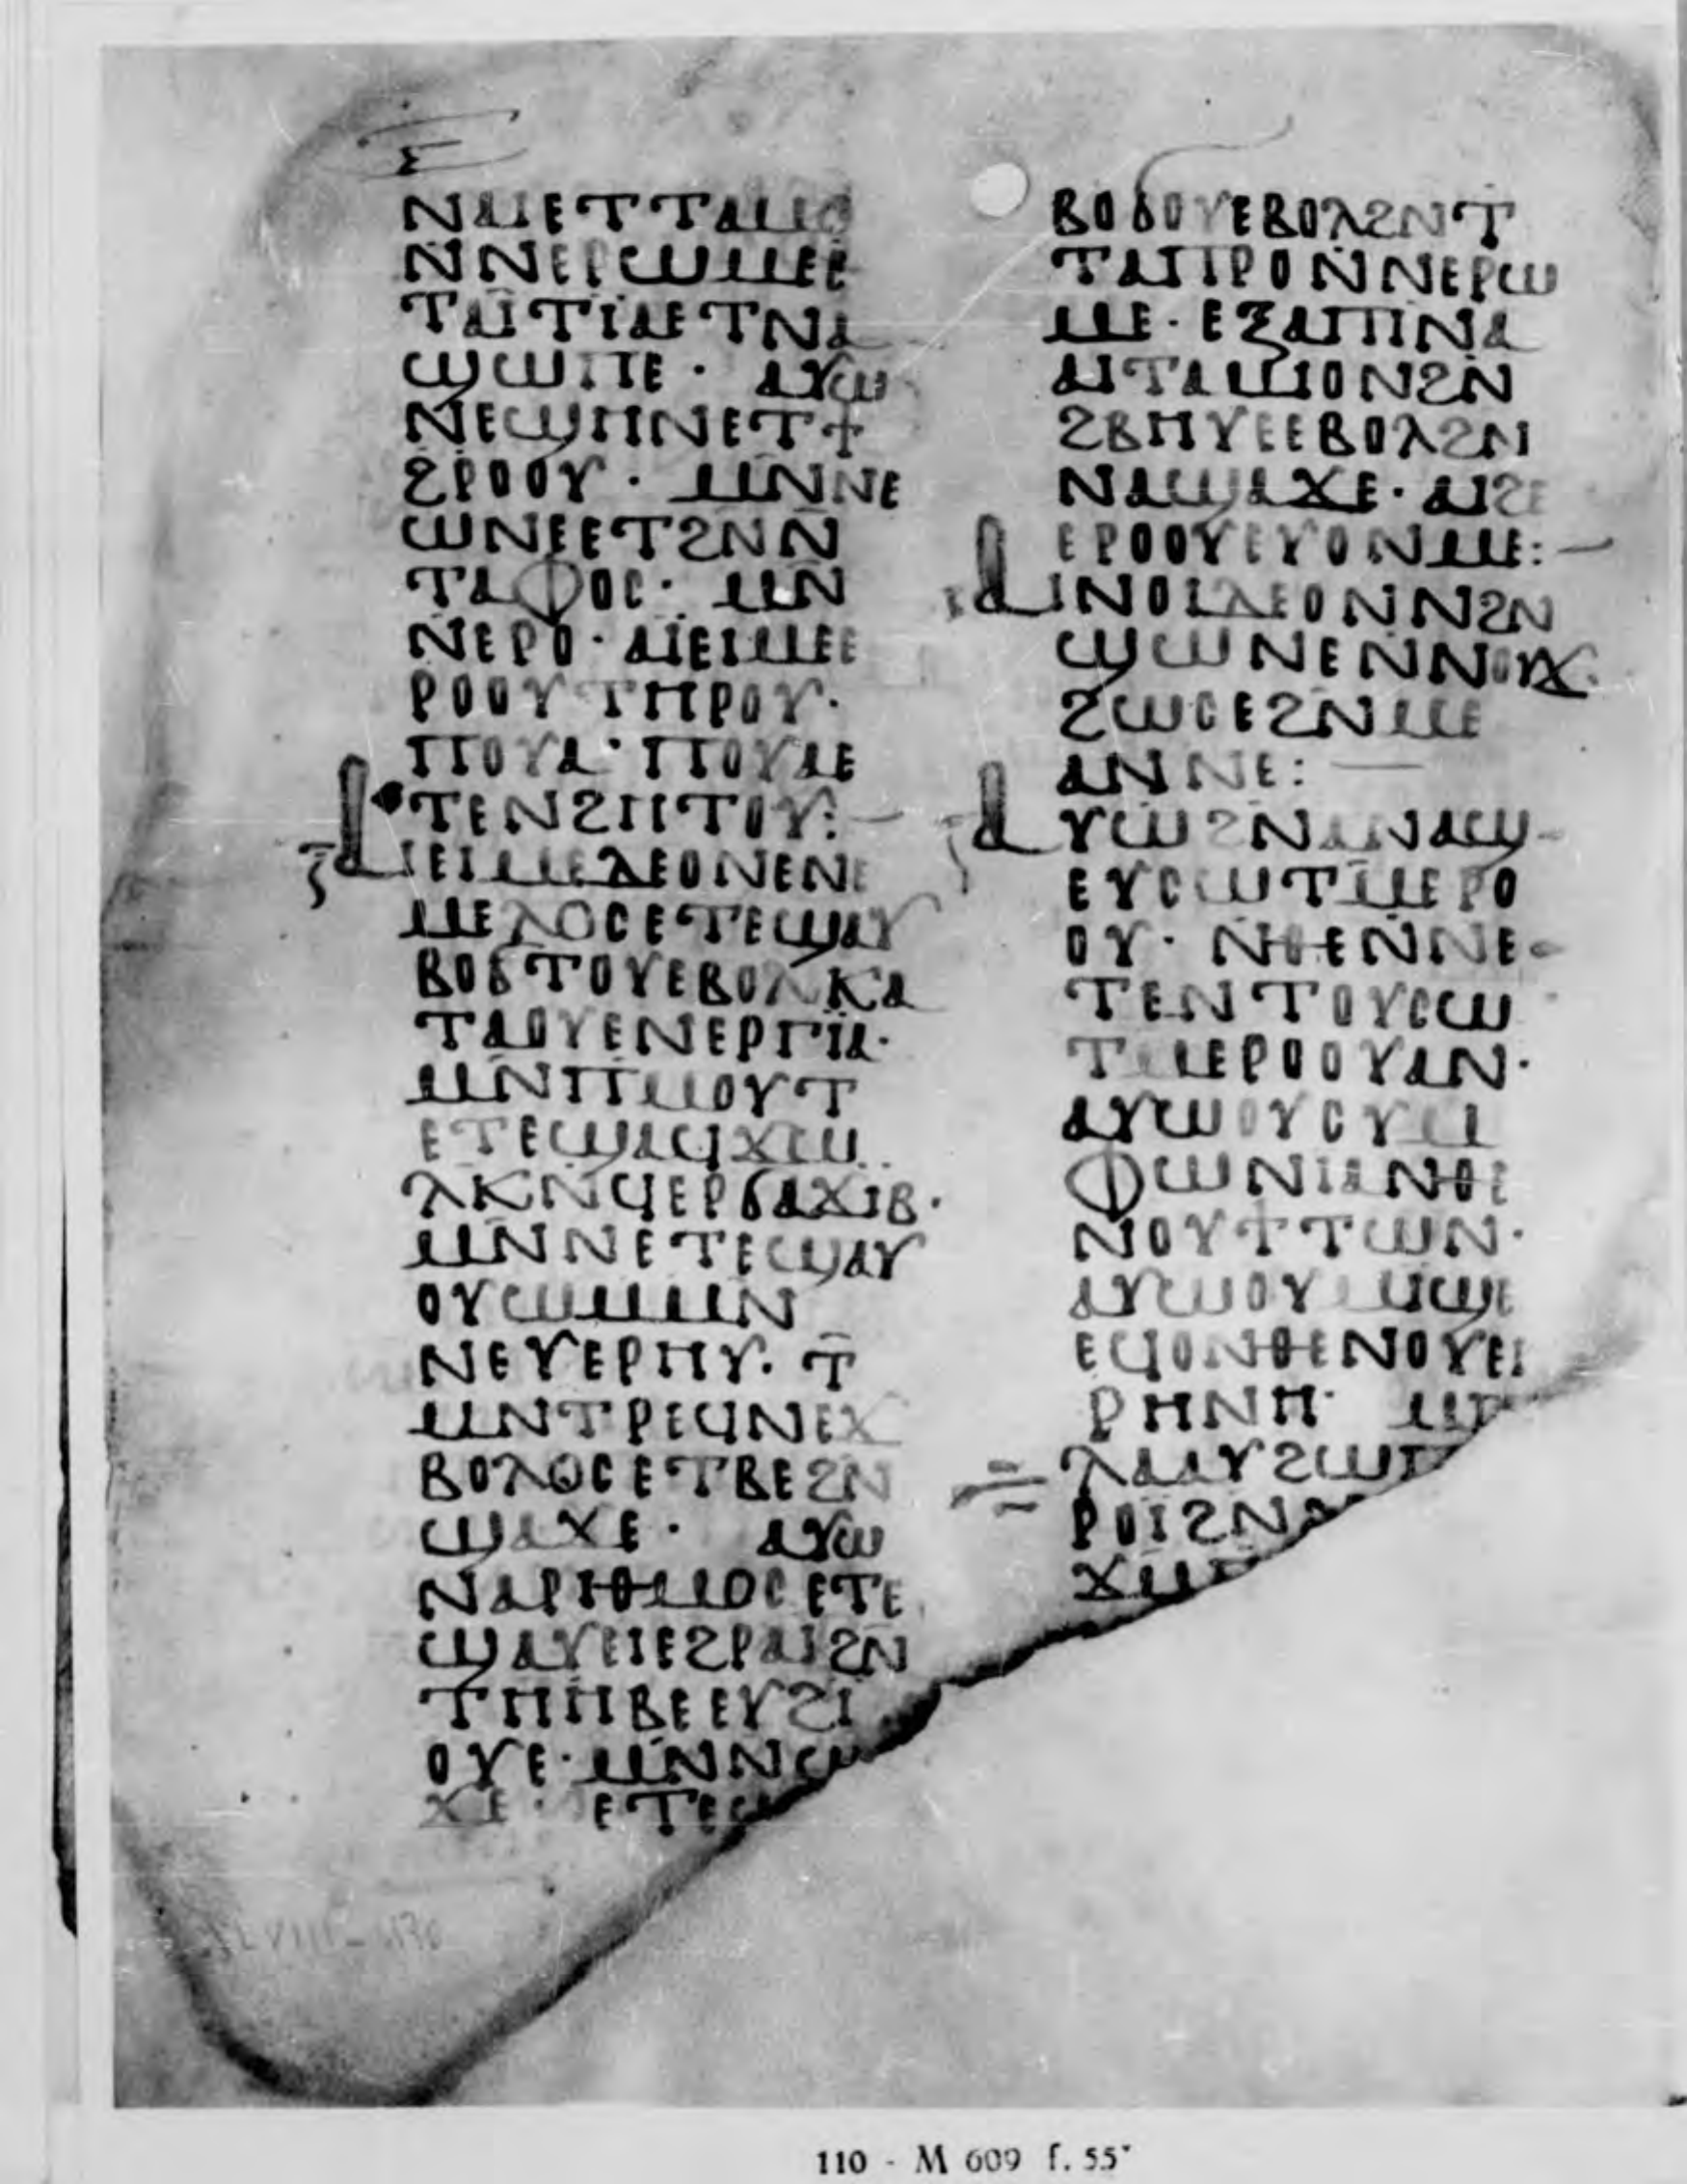 ⲋ
ⲛⲁⲙⲉⲧⲧⲁⲙⲟ
ⲛ̄ⲛⲉⲣⲱⲙⲉⲉ
ⲧⲁⲓ̈ⲧⲓⲇⲉⲧⲛⲁ
ϣⲱⲡⲉ · ⲁⲩⲱ
ⲛⲉϣⲏⲛⲉⲧϯ
ϩⲣⲟⲟⲩ · ⲙⲛ̄ⲛⲉ
ⲱⲛⲉⲉⲧϩⲛ̄ⲛ̄
ⲧⲁⲫⲟⲥ · ⲙⲛ̄
ⲛⲉⲣⲟ · ⲁⲓⲉⲓⲙⲉⲉ
ⲣⲟⲟⲩⲧⲏⲣⲟⲩ ·
ⲡⲟⲩⲁ · ⲡⲟⲩⲁⲉ
ⲧⲉⲛϩⲏⲧⲟⲩ : —
ⲁⲓⲉⲓⲙⲉⲇⲉⲟⲛⲉⲛⲉ
ⲙⲉⲗⲟⲥⲉⲧⲉϣⲁⲩ
ⲃⲟϭⲧⲟⲩⲉⲃⲟⲗⲕⲁ
ⲧⲁⲟⲩⲉⲛⲉⲣⲅⲓⲁ ·
ⲙⲛ̄ⲡⲙⲟⲩⲧ
ⲉⲧⲉϣⲁϥϫⲱ
ⲗⲕⲛ̄ϥⲉⲣϭⲁϫⲓⲃ ·
ⲙⲛ̄ⲛⲉⲧⲉϣⲁⲩ
ⲟⲩⲱⲙⲙⲛ
ⲛⲉⲩⲉⲣⲏⲩ · ⲧ̄
ⲙⲛⲧⲣⲉϥⲛⲉϫ
ⲃⲟⲗⲟⲥⲉⲧⲃⲉϩⲛ̄
ϣⲁϫⲉ · ⲁⲩⲱ
ⲛⲁⲣⲓⲑⲙⲟⲥⲉⲧⲉ
ϣⲁⲩⲉⲓⲉϩⲣⲁⲓϩⲛ̄
ⲧⲏⲏⲃⲉⲉⲩϩⲓ
ⲟⲩⲉ · ⲙⲛ̄ⲛϣ
ϫⲉ · ⲉⲧⲉϣ
ⲃⲟϭⲟⲩⲉⲃⲟⲗϩⲛⲧ
ⲧⲁⲡⲣⲟⲛ̄ⲛⲉⲣⲱ
ⲙⲉ · ⲉⲝⲁⲡⲓⲛⲁ
ⲁⲓⲧⲁⲙⲓⲟⲛϩⲛ̄
ϩⲃⲏⲩⲉⲉⲃⲟⲗϩⲛ
ⲛⲁϣⲁϫⲉ · ⲁⲓϩⲉ
ⲉⲣⲟⲟⲩⲉⲩⲟⲛⲙⲉ : —
ⲁⲓⲛⲟⲓⲇⲉⲟⲛⲛ̄ϩⲛ̄
ϣⲱⲛⲉⲛ̄ⲛⲟⲩϫ
ϩⲱⲥⲉϩⲛ̄ⲙⲉ
ⲁⲛⲛⲉ : —
ⲁⲩⲱϩⲛⲁⲛⲁϣ
ⲉⲩⲥⲱⲧⲙ̄ⲉⲣⲟ
ⲟⲩ · ⲛ̄ⲑⲉⲛ̄ⲛⲉ
ⲧⲉⲛⲧⲟⲩⲥⲱ
ⲧⲙⲉⲣⲟⲟⲩⲁⲛ ·
ⲁⲩⲱⲟⲩⲥⲩⲙ
ⲫⲱⲛⲓⲁⲛ̄ⲑⲉ
ⲛ̄ⲟⲩⲧⲧⲱⲛ ·
ⲁⲩⲱⲟⲩⲙⲓϣⲉ
ⲉϥⲟⲛ̄ⲑⲉⲛⲟⲩⲉⲓ
ⲣⲏⲛⲏ · ⲙⲡ
ⲗⲁⲁⲩϩⲱⲡ
ⲣⲟⲓ̈ϩⲛ
ϫⲙ
110 - M 609 f. 55ᵛ